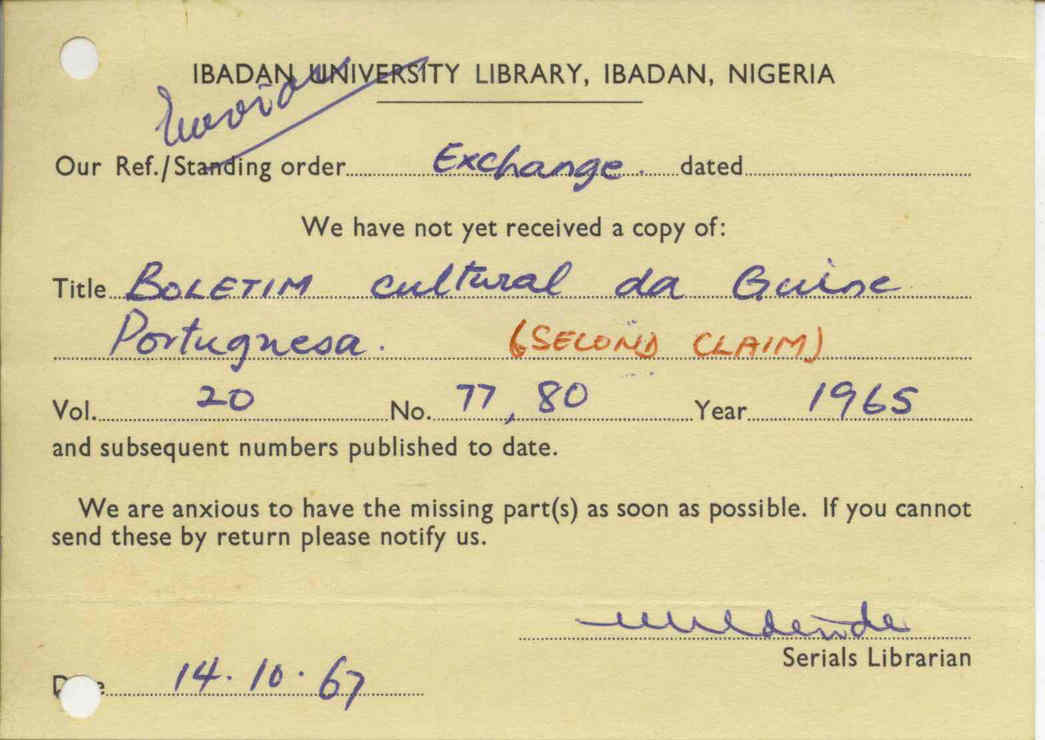 IBADAN UNIVERSITY LIBRARY, IBADAN, NIGERIA
Our Ref./Standing order Exchange. dated
We have not yet received a copy of:
Title BOLETIM cultural da Guine
Portuguesa. (SECOND CLAIM)
Vol. 20 No. 77, 80 Year 1965
and subsequent numbers published to date.
We are anxious to have the missing part(s) as soon as possible. If you cannot
send these by return please notify us.
Serials Librarian
Date 14.10.67